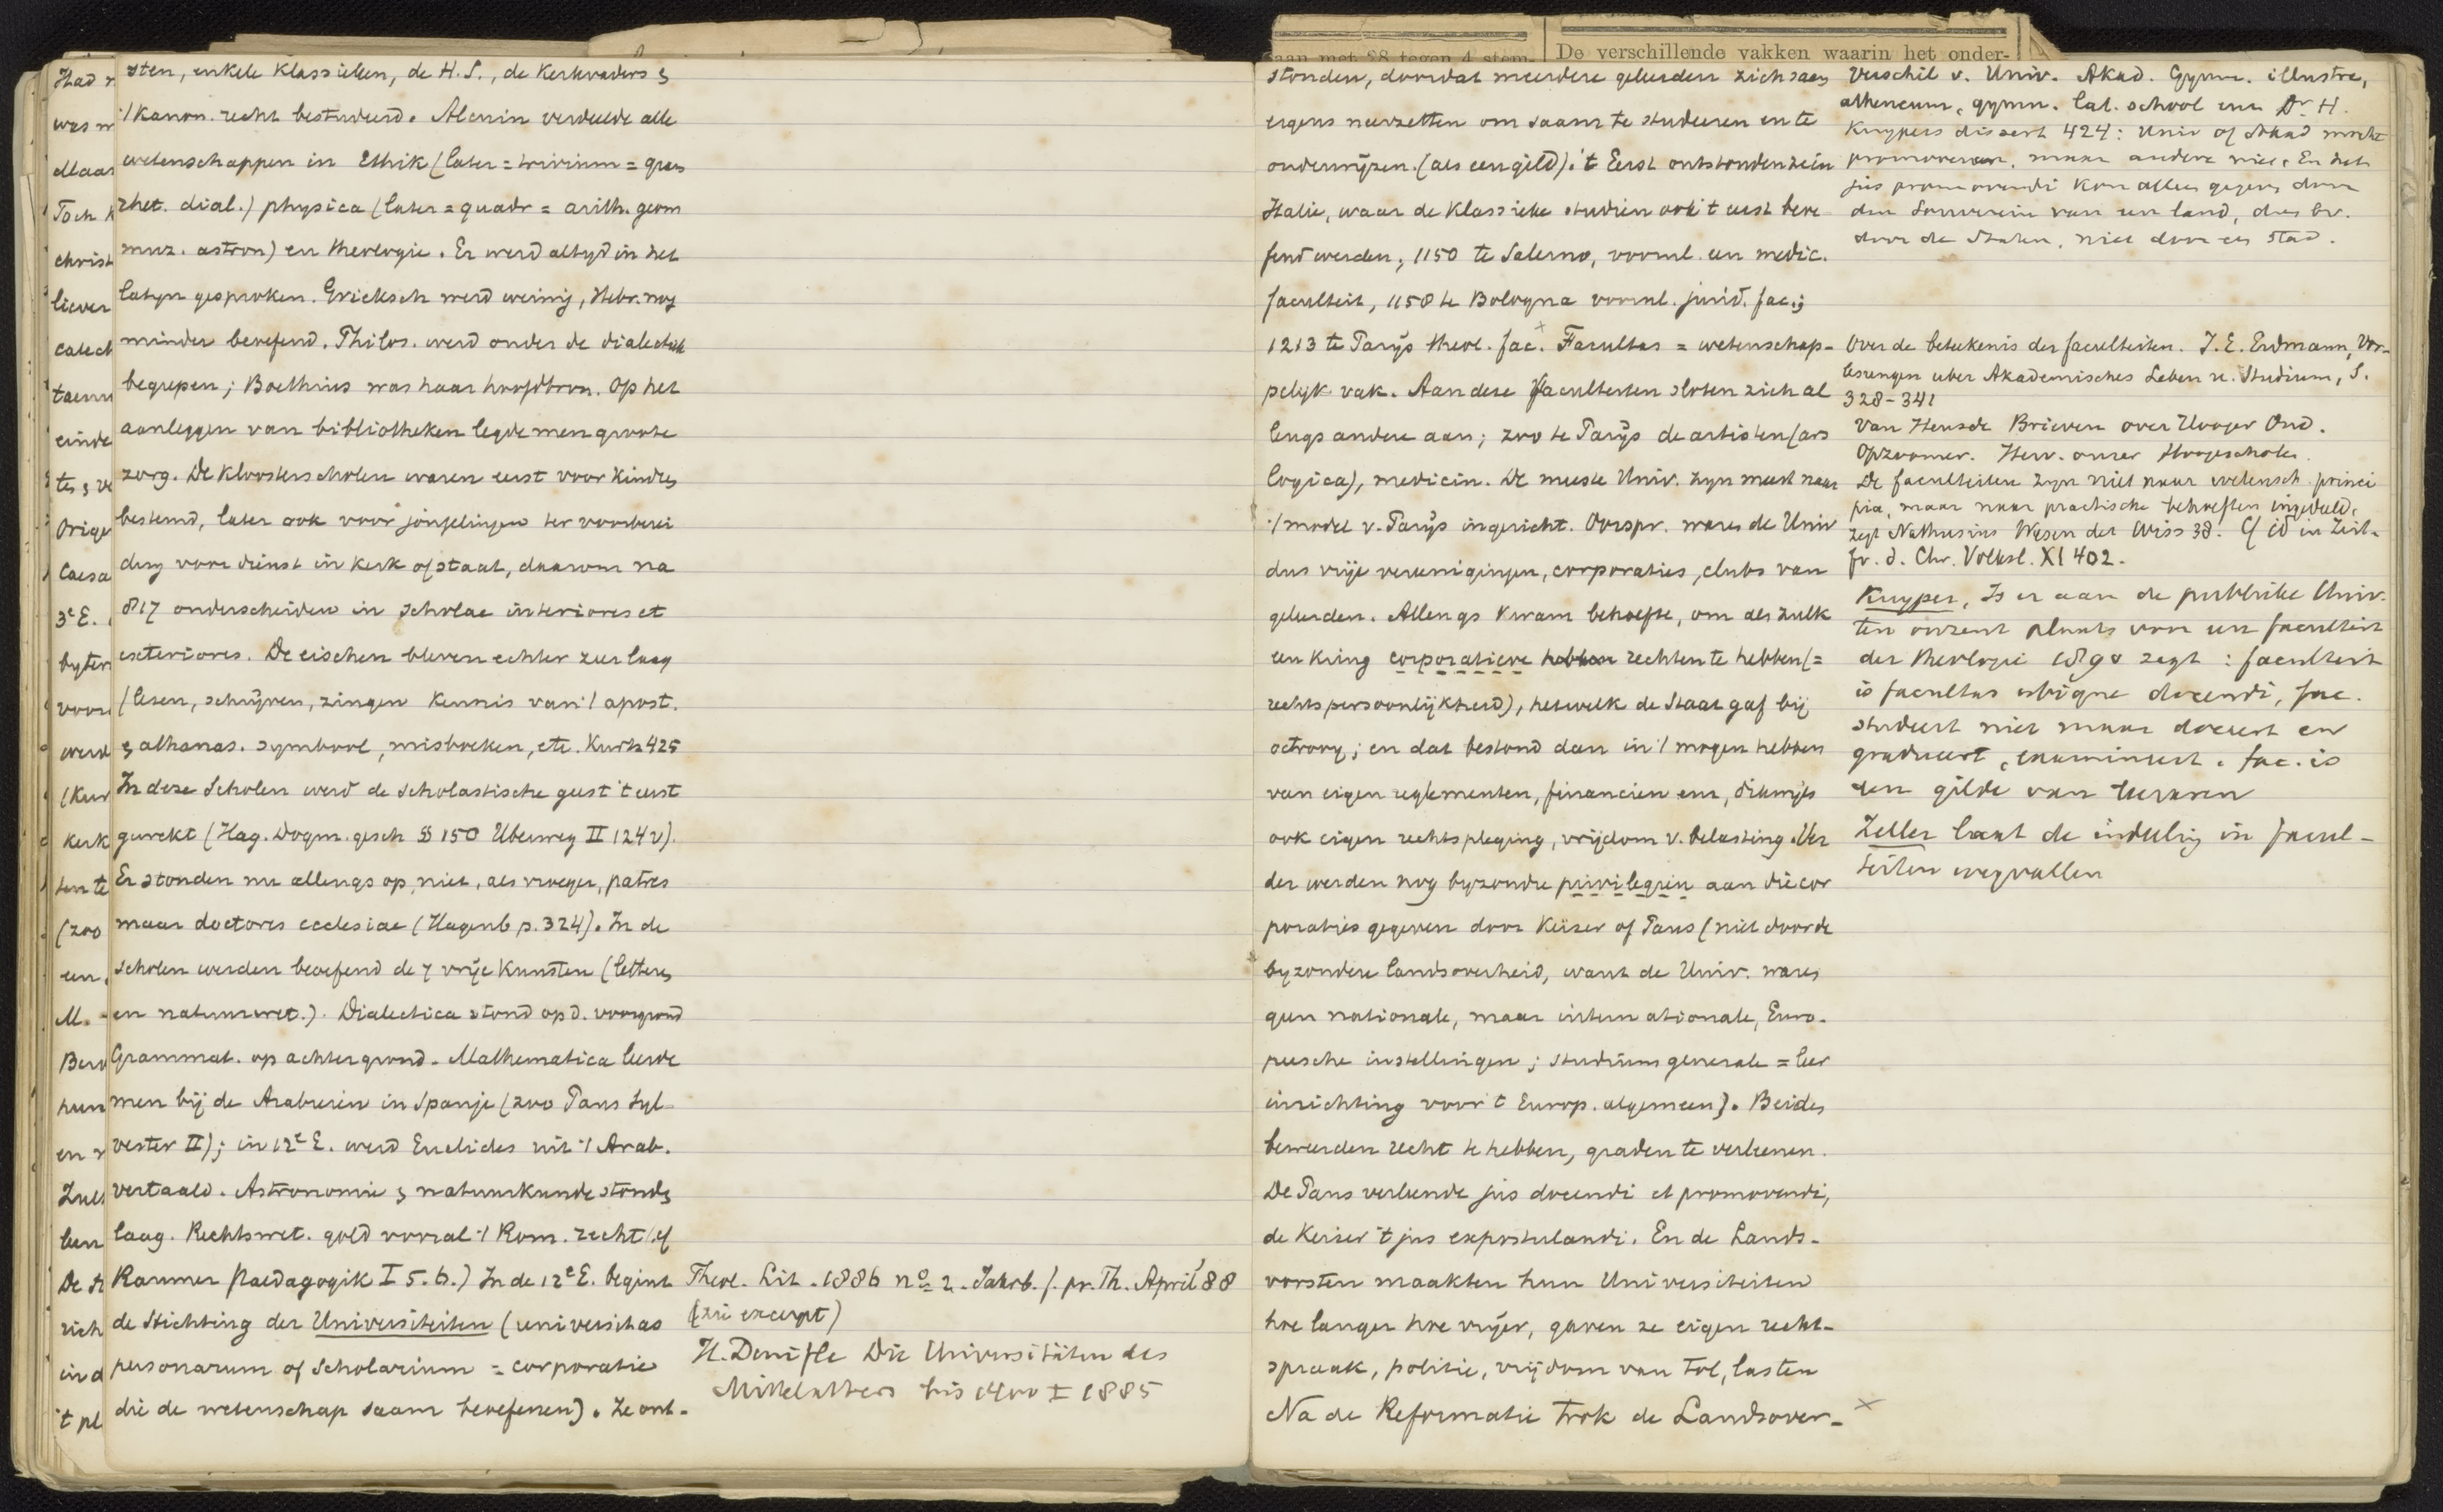 sten, enkele klassieken, de H.S., de Kerkvaders &
't kanon. recht bestudeerd. Alcuin verdeelde alle
wetenschappen in Ethik (later = trivium = gram
rhet. dial.) physica (later = quadr = arith. geom
muz. astron) en theologie. Er werd altyd in het
latyn gesproken. Grieksch werd weinig, Hebr. nog
minder beoefend. Philos. werd onder de dialectiek
begrepen; Boethius was haar hoofdbron. Op het
aanleggen van bibliotheken legde men groote
zorg. De kloosterscholen waren eerst voor kinders
bestemd, later ook voor jongelingen ter voorberei
ding voor dienst in kerk of staat, daarom na
817 onderscheiden in scholae interiores et
exteriores. De eischen bleven echter zeer laag
(lezen, schrijven, zingen kennis van 't apost.
& athanas. symbool, misboeken, etc. Kurtz 425
In deze Scholen werd de scholastische geest 't eerst
gewekt (Hag. Dogm. gesch § 150 Uberweg II 124 v).
Er stonden nu allengs op, niet, als vroeger, patres
maar doctores ecclesiae (Hagenb p. 324). In de
scholen werden beoefend de 7 vrije Kunsten (letteren
en natuurwet.). Dialectica stond op d. voorgrond
Grammat. op achtergrond. Mathematica leerde
men bij de Arabieren in Spanje (zoo Paus Syl-
vester II); in 12e E. werd Euclides uit 't Arab.
vertaald. Astronomie & natuurkunde stonden
laag. Rechtswet. gold vooral 't Rom. recht (cf
Raumer Paedagogik I 5.6.) In de 12e E. begint
de stichting der Universiteiten (universitas
personarum of scholarium = corporatie
die de wetenschap saam beoefenen). Ze ont-
Theol. Lit. 1886 no 2. Jahrb. f. pr. Th. April 88
(zie excerpt)
H. Denifle Die Universitäten des
Mittelalters bis 1400 I 1885
stonden, doordat meerdere geleerden zich saam
ergens neerzetten om saam te studeeren en te
onderwijzen. (als een gild). 't Eerst ontstonden ze in
Italie, waar de klassieke studien ook 't eerst beoe
fend werden; 1150 te Salerno, voornl. een medic.
faculteit, 1158 te Bologna voornl. jurid. fac.;
1213 te Parijs theol. fac. Facultas = wetenschap-
pelijk vak. Aan deze faculteiten sloten zich al
lengs andere aan; zoo te Parijs de artisten (ars
logica), medicin. De meeste Univ. zyn meest naar
't model v. Parijs ingericht. Oorspr. waren de Univ
dus vrije vereenigingen, corporaties, clubs van
geleerden. Allengs kwam behoefte, om als zulk
een kring corporatieve hebben rechten te hebben (=
rechtspersoonlijkheid), hetwelk de Staat gaf bij
octrooy; en dat bestond dan in 't mogen hebben
van eigen reglementen, financien enz, dikwijls
ook eigen rechtspleging, vrijdom v. belasting. Ver
der werden nog byzondre privilegien aan die cor
poraties gegeven door Keizer of Paus (niet door de
byzondere landsoverheid, want de Univ. waren
geen nationale, maar internationale, Euro-
peesche instellingen; studium generale = leer
inrichting voor 't Europ. algemeen). Beiden
beweerden recht te hebben, graden te verleenen.
De Paus verleende jus docendi et promovendi,
de Keizer 't jus expostulandi. En de Lands-
vorsten maakten hun Universiteiten
hoe langer hoe vrijer, gaven ze eigen recht-
spraak, politie, vrijdom van tol, lasten
Na de Reformatie trok de Landsover-
Verschil v. Univ. Akad. Gymn. illustre,
atheneum, gymn. lat. school enz Dr. H.
Kuypers dissert 424: Univ of Akad mocht
promoveeren, maar andere niet. En het
jus promovendi kon alleen gegeven door
den Souverein van een land, dus bv.
door de Staten, niet door een stad.
Over de beteekenis der faculteiten. J.E. Erdmann, Vor-
lesungen uber Akademisches Leben u. Studium, S.
328-341
Van Heusde Brieven over Hooger Ond.
Opzoomer. Herv. onzer Hoogescholen.
De faculteiten zyn niet naar wetensch. princi
pia, maar naar practische behoeften ingedeeld,
zegt Nathusius Wesen der Wiss 38. Cf id in Zeit-
fr. d. Chr. Volksl. XI 402.
Kuyper, Is er aan de publieke Univ.
ten onzent plaats voor een faculteit
der theologie 1890 zegt: faculteit
is facultas ubique docendi, fac.
studeert niet maar doceert en
gradueert, examineert. fac. is
een gilde van leeraren
Zeller laat de indeeling in facul-
teiten wegvallen
De verschillende vakken waarin het onder-